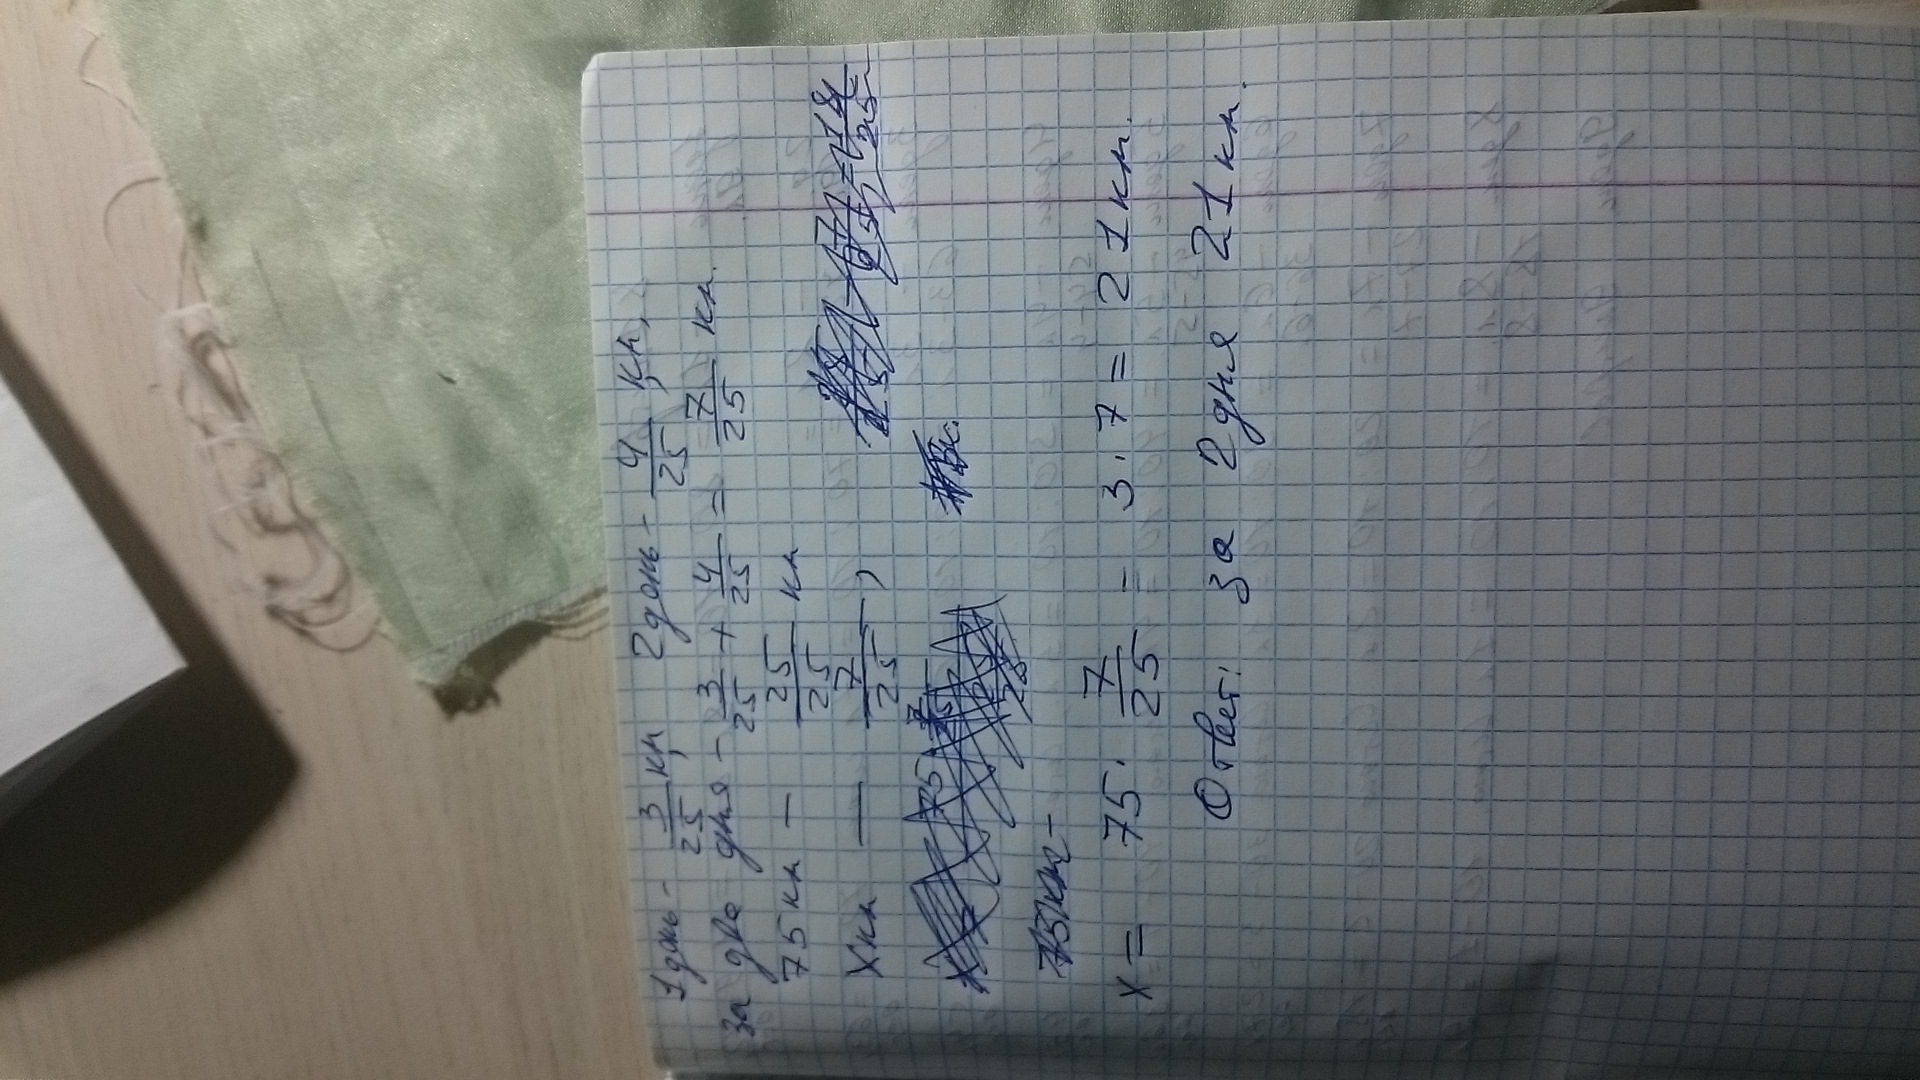 1 день - 3/25 км, 2 день - 4/25 км,
за два дня - 3/25 + 4/25 = 7/25 км.
75 км — 25/25 км
Х км — 7/25,
75 км -
х = 75 · 7/25 = 3 · 7 = 21 км.
Ответ: за 2 дня 21 км.